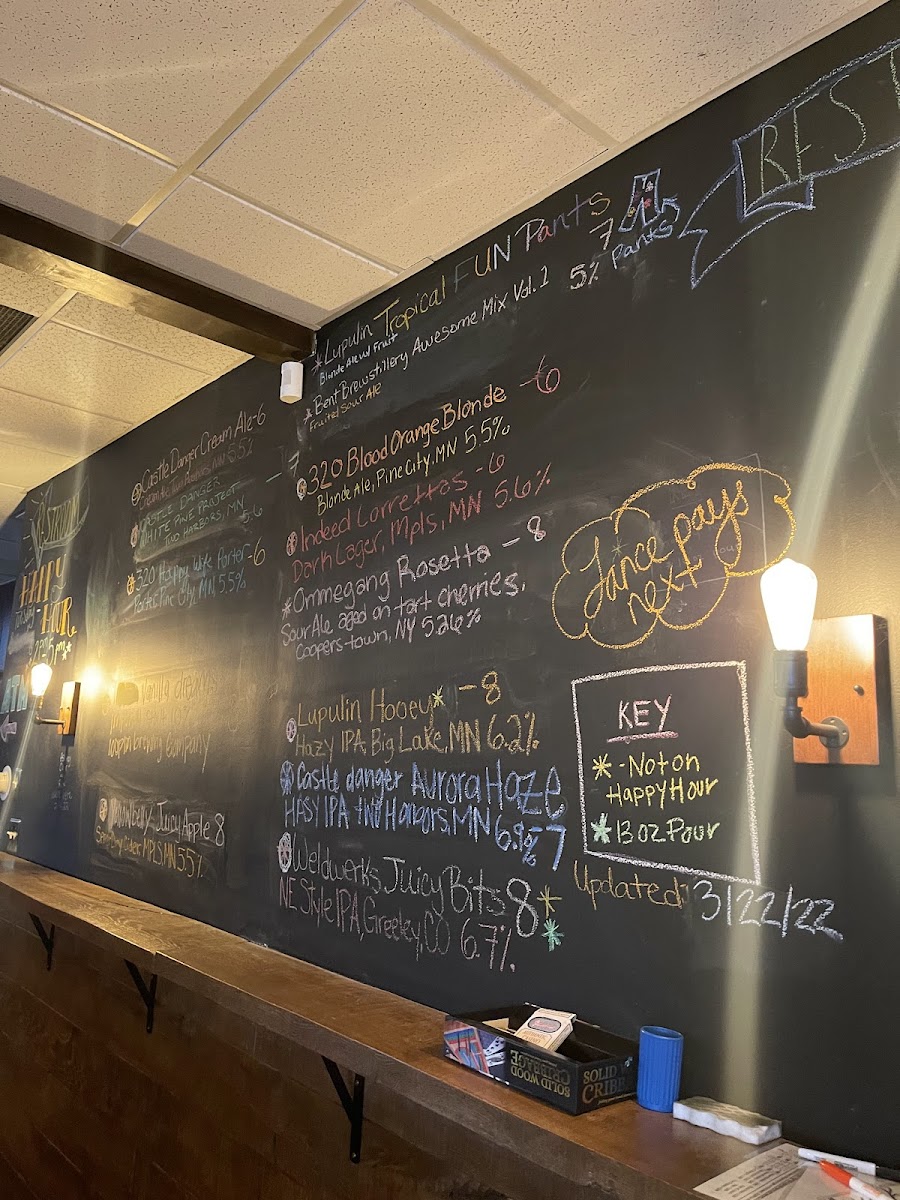 REST
HAPPY
HOUR
Castle Danger Cream Ale-6
5.5%
CASTLE DANGER
WHITE PINE PROJECT
TWO HARBORS, MN
5.6
- 7
320 Happy Wife Porter -6
Porter, Pine City, MN, 5.5%
vanilla
Brewing Company
Juicy Apple 8
Cider MPLS, MN 5.5%
*Lupulin Tropical FUN Pants 7
Blonde Ale w/ Fruit
Pants
*Bent Brewstillery Awesome Mix Vol. 1 5%
Fruited Sour Ale
320 Blood Orange Blonde - 6
Blonde Ale, Pine City, MN 5.5%
Indeed Lorrettas -6
Dark Lager, Mpls, MN 5.6%
*Ommegang Rosetta - 8
Sour Ale aged on tart cherries,
Coopers-town, NY 5.26%
Lupulin Hooey* - 8
Hazy IPA, Big Lake, MN 6.2%
Castle danger Aurora Haze
HASY IPA two Harbors, MN 6.9% 7
Weldwerks Juicy Bits 8 *
NE Style IPA, Greeley, CO 6.7% *
Lance pays
next
KEY
* - Not on
Happy Hour
* 13 oz Pour
Updated: 3/22/22
SOLID WOOD
CRIBBAGE
SOLID
CRIBB